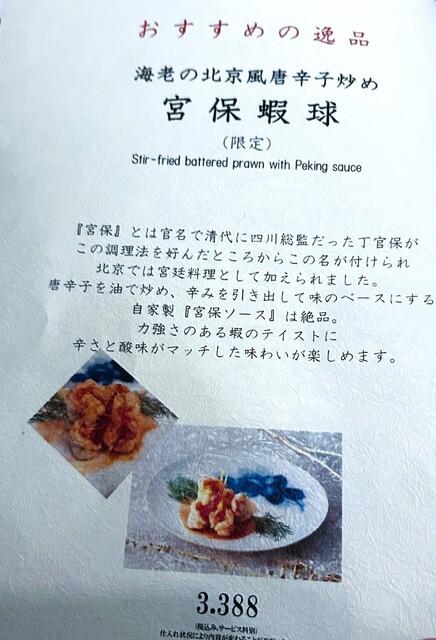 おすすめの逸品
海老の北京風唐辛子炒め
宮保蝦球
（限定）
Stir-fried battered prawn with Peking sauce
『宮保』とは官名で清代に四川総監だった丁官保が
この調理法を好んだところからこの名が付けられ
北京では宮廷料理として加えられました。
唐辛子を油で炒め、辛みを引き出して味のベースにする
自家製『宮保ソース』は絶品。
力強さのある蝦のテイストに
辛さと酸味がマッチした味わいが楽しめます。
3.388
（税込み、サービス料別）
仕入れ状況により内容が変わることが